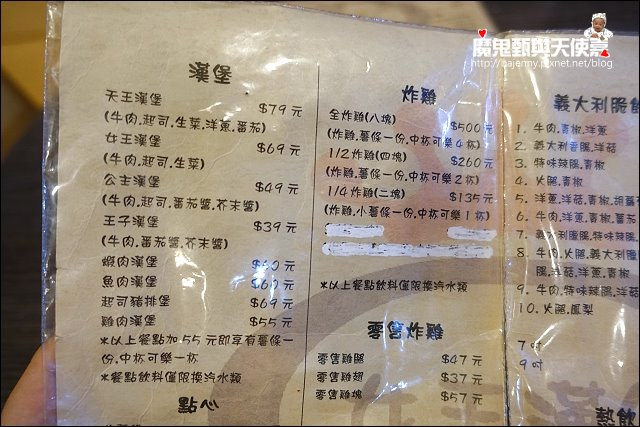 魔鬼甄與天使嘉
http://bajenny.pixnet.net/blog
漢堡
天王漢堡 $79元
(牛肉.起司.生菜.洋蔥.番茄)
女王漢堡 $69元
(牛肉.起司.生菜)
公主漢堡 $49元
(牛肉.起司.番茄醬.芥末醬)
王子漢堡 $39元
(牛肉.番茄醬.芥末醬)
蝦肉漢堡 $60元
魚肉漢堡 $60元
起司豬排堡 $69元
雞肉漢堡 $55元
*以上餐點加55元即享有薯條一
份.中杯可樂一杯
*餐點飲料僅限換汽水類
點心
炸雞
全炸雞(八塊) $500元
(炸雞.薯條一份.中杯可樂4杯)
1/2炸雞(四塊) $260元
(炸雞.薯條一份.中杯可樂2杯)
1/4炸雞(二塊) $135元
(炸雞.小薯條一份.中杯可樂1杯)
*以上餐點飲料僅限換汽水類
零售炸雞
零售雞腿 $47元
零售雞翅 $37元
零售雞塊 $57元
義大利脆餅
1. 牛肉.青椒.洋蔥
2. 義大利香腸.洋菇
3. 特味辣腸.青椒
4. 火腿.青椒
5. 洋蔥.洋菇.青椒.胡蘿蔔
6. 牛肉.洋蔥.青椒.番茄
7. 義大利香腸.特味辣腸
8. 牛肉.火腿.義大利
腸.洋菇.洋蔥.青椒
9. 牛肉.特味辣腸.洋菇
10. 火腿.鳳梨
7吋
9吋
熱飲